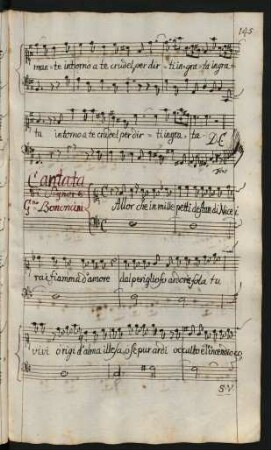 145
man=te intorno a te crudel per dir=ti ingra=ta ingra=
ta intorno a te crudel per dir=ti ingra=ta D.C.
Cantata
Bononcini
Allor che in mille petti destan di Nice i
rai fiamma d'amore dal periglioso ardore sola tu
vivi o rigid'alma illesa o se pur ardi occulto è l'incendio e co
S.V.